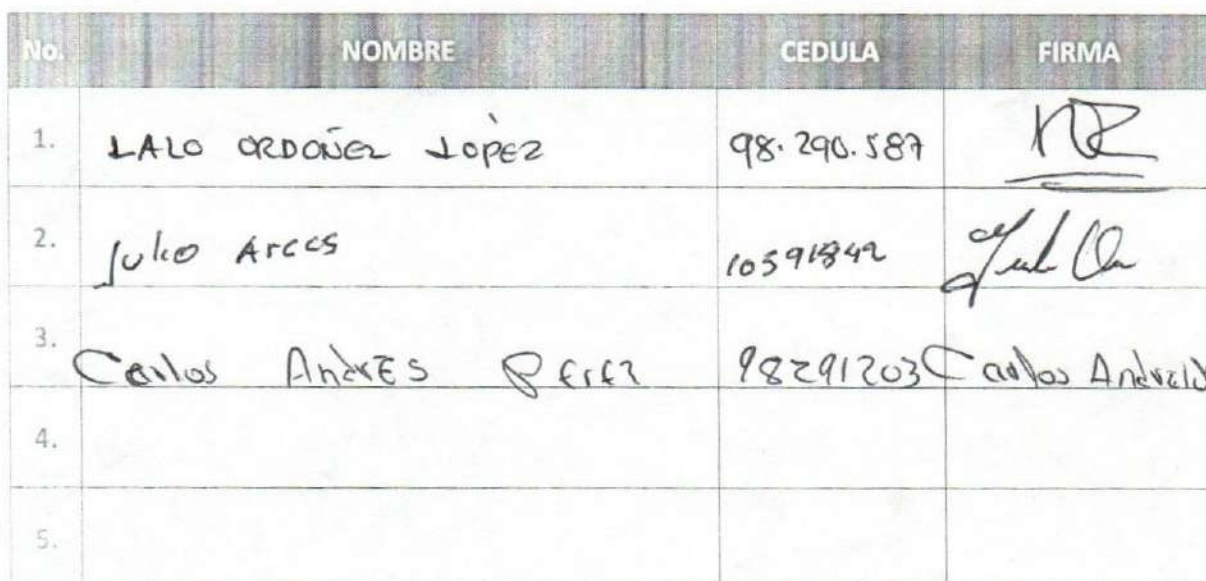 No. NOMBRE CEDULA FIRMA
1. LALO ORDOÑEZ LÓPEZ 98.290.587
2. Julio Arces 10591842
3. Carlos Andrés Perez 98291203 Carlos Andres
4.
5.